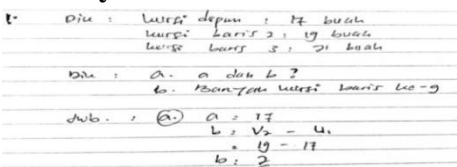 1. Dik : kursi depan : 17 buah
kursi baris 2 : 19 buah
kursi baris 3 : 21 buah
Dik : a. a dan b ?
b. Banyak kursi baris ke-9
Jwb. : (a.) a = 17
b = U2 - U1
= 19 - 17
b = 2